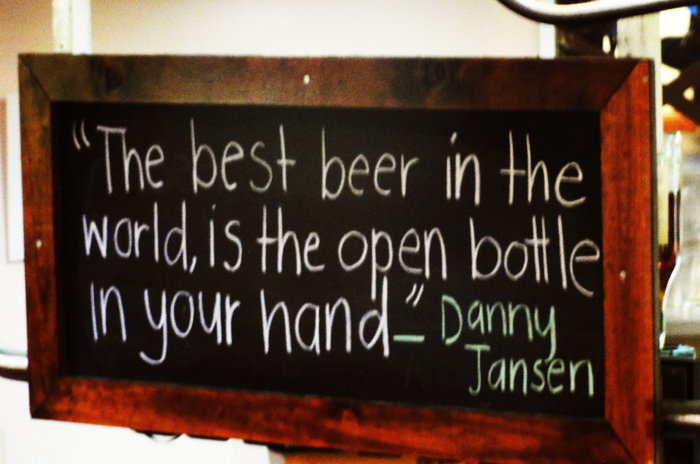 "The best beer in the
world, is the open bottle
in your hand" - Danny
Jansen